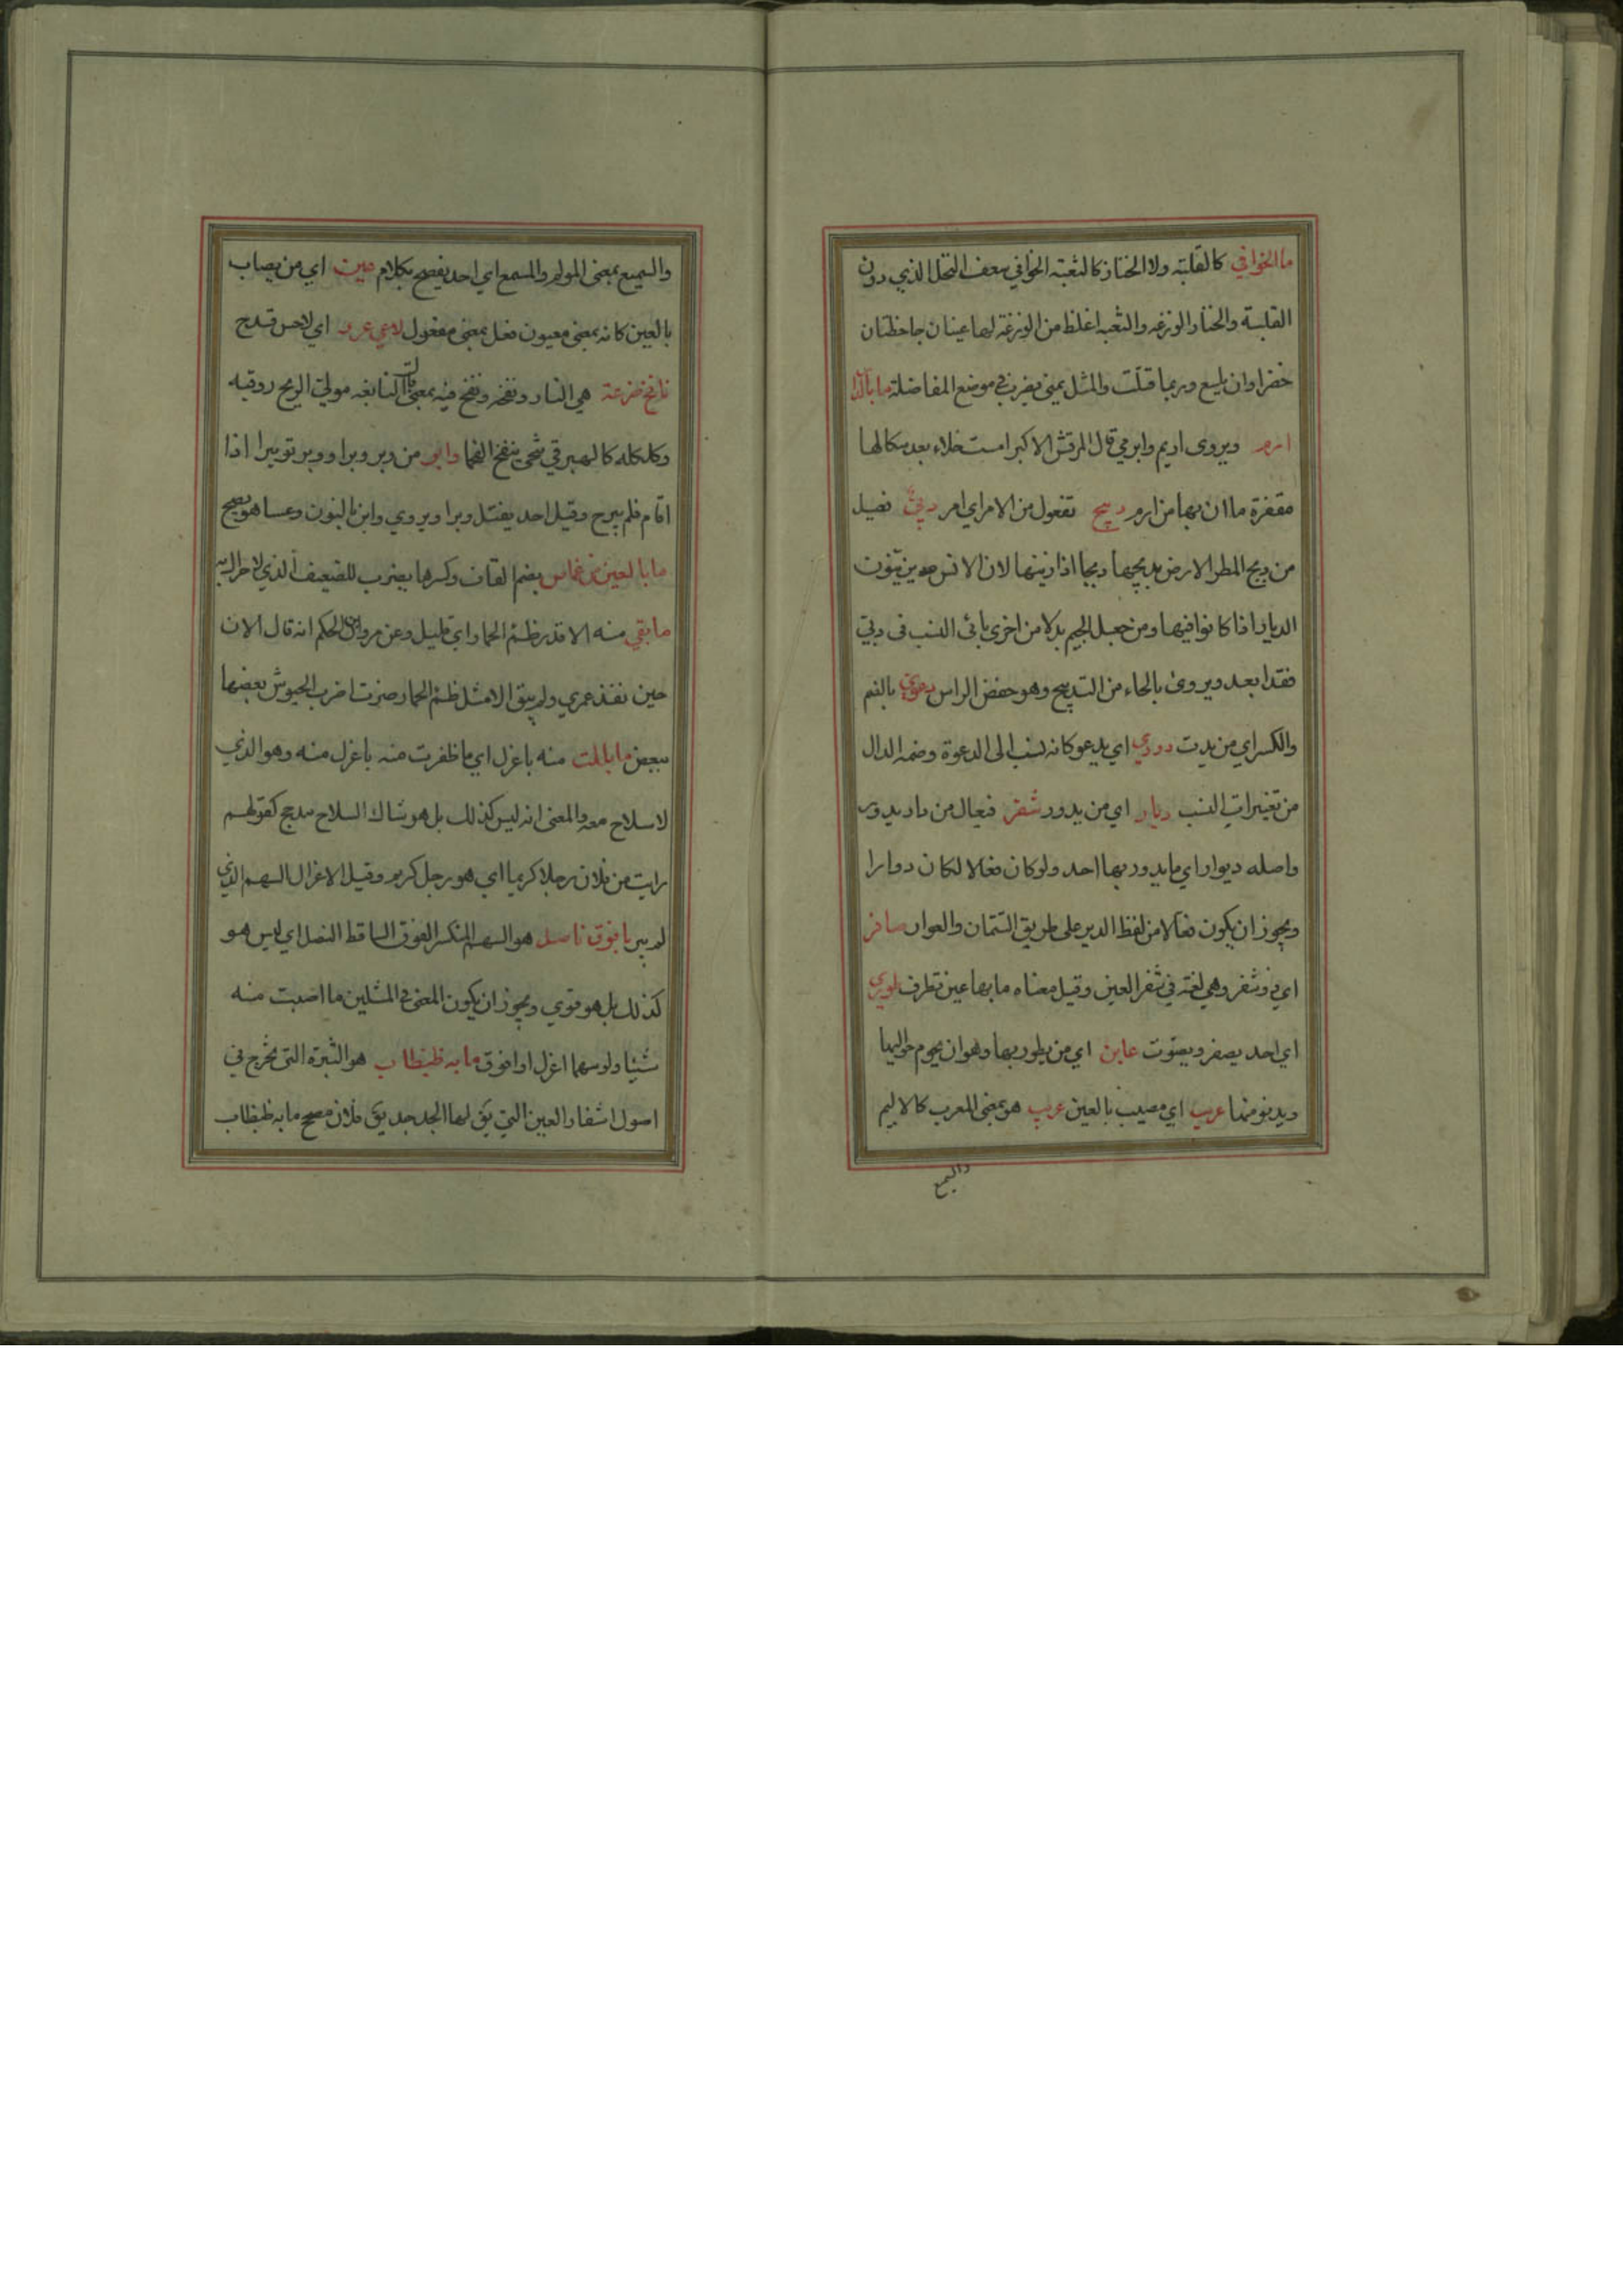 ما الخوافي كالقلبة ولا الخناز كالثعبة الخوافي سعف النخل الذي دون
القلبة والخناز الوزغه والثعبه اغلظ من الوزغة لها عينان جاحظتان
خضراوان تلسع وربما قتلت والمثل يمني يضرب في موضع المفاضلة ما بالدار
ارم ويروى اريم وايرمي قال المرقش الاكبر امست خلاء بعد سكانها
مقفرة ما ان بها من ارم دبيج تفعول من الامر اي امر دبي فعيل
من دبج المطر الارض يدبجها دبجا اذا زينها لان الانس هو يزينون
الديار اذا كانوا فيها ومن جعل الجيم بدلا من اخرى يائي النسب في دبي
فقد ابعد ويروى بالحاء من التدبيح وهو خفض الراس دعوي بالضم
والكسر اي من يدب دوري اي يدعو كانه نسب الى الدعوة وضمه الدال
من تغييرات النسب ديار اي من يدور شفر فيعال من دار يدور
واصله ديوار اي ما يدور بها احد ولو كان فعالا لكان دوارا
ويجوز ان يكون فعالا من لفظ الدير على طريق التتمان والعوار صافر
اي ذو شفر وهي لغة في شفر العين وقيل معناه ما بها عين تطرف لوري
اي احد يصفر ويصوت عاين اي من يطور بها وهو ان يحوم حواليها
ويدنو منها عريب اي مصيب بالعين عريب هو بمعنى المعرب كالاليم
والسميع
والسميع بمعنى المولم والمسمع اي احد يفصح بكلام عين اي من يصاب
بالعين كانه بمعنى معيون فعل بمعنى مفعول لاعي قرو اي لاحس قدح
نافخ ضرعة هي النار ونفخ ونفخ فيه بمعنى قال النابغه مولي الريح روقيه
وكلكله كالهبرقي تنحى ينفخ الفحما وابر من وبر وبرا ووبر توبيرا اذا
اقام فلم يبرح وقيل احد يفتل وبرا ويروي وابن بالنون وعسا هو يصح
ما بالعين من غماس بضم القاف وكسرها يضرب للضعيف الذي لا حراك به
ما بقي منه الا قدر ظمئ الحمار اي قليل وعن مروان بن الحكم انه قال الان
حين نفذ عمري ولم يبق الا مثل ظمئ الحمار صرت اضرب الجيوش بعضها
ببعض ما بللت منه باعزل اي ما ظفرت منه باعزل منه وهو الذي
لا سلاح معه والمعنى انه ليس كذلك بل هو شاك السلاح مدجج كقولهم
رايت من فلان رجلا كريما اي هو رجل كريم وقيل الاعزل السهم الذي
لم يبر بافوق ناصل هو السهم المنكسر الفوق الساقط النصل اي ليس هو
كذلك بل هو قوي ويجوز ان يكون المعنى في المثلين ما اصبت منه
شيئا ولو سهما اعزل او افوق ما به ظبظاب هو البثرة التي تخرج في
اصول اشفار العين التي يق لها الجدجد يق فلان صحيح ما به ظبظاب